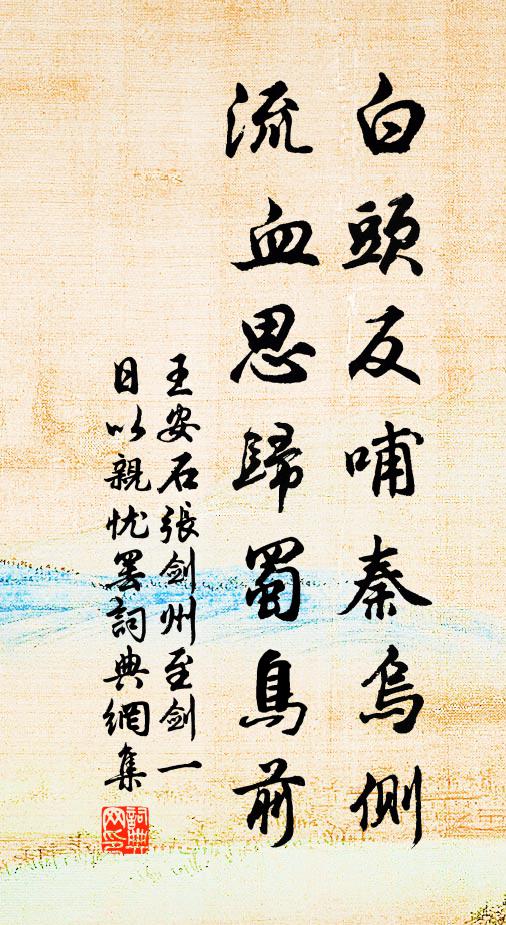 白頭反哺秦烏側
流血思歸蜀鳥前
王安石張劍州至劍一
日以親忧罢詞典網集
詞典网